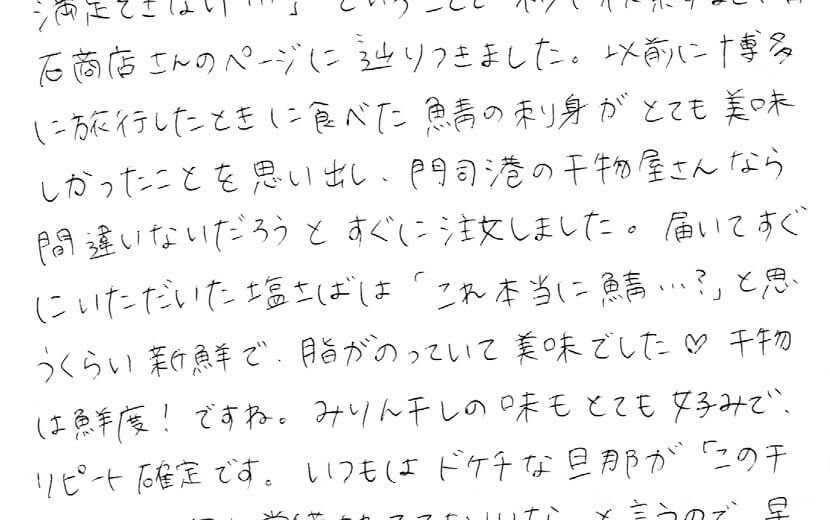 満足できない…」ということで
石商店さんのページに辿りつきました。以前に博多
に旅行したときに食べた鯖の刺身がとても美味
しかったことを思い出し、門司港の干物屋さんなら
間違いないだろうとすぐに注文しました。届いてすぐ
にいただいた塩さばは「これ本当に鯖…?」と思
うくらい新鮮で、脂がのっていて美味でした♡ 干物
は鮮度!ですね。みりん干しの味もとても好みで、
リピート確定です。いつもはドケチな旦那が「この干
と言うので、早